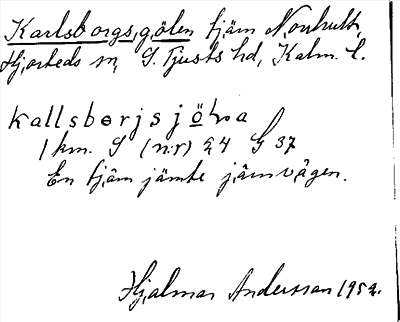 Karlsborgsgölen tjärn Nonhult,
Hjorteds sn, S. Tjusts hd, Kalm. l.
kallsbɵrjsjöɩ̇a
1 km. S (nr) 24 G 37
En tjärn jämte järnvägen.
Hjalmar Andersson 1952.